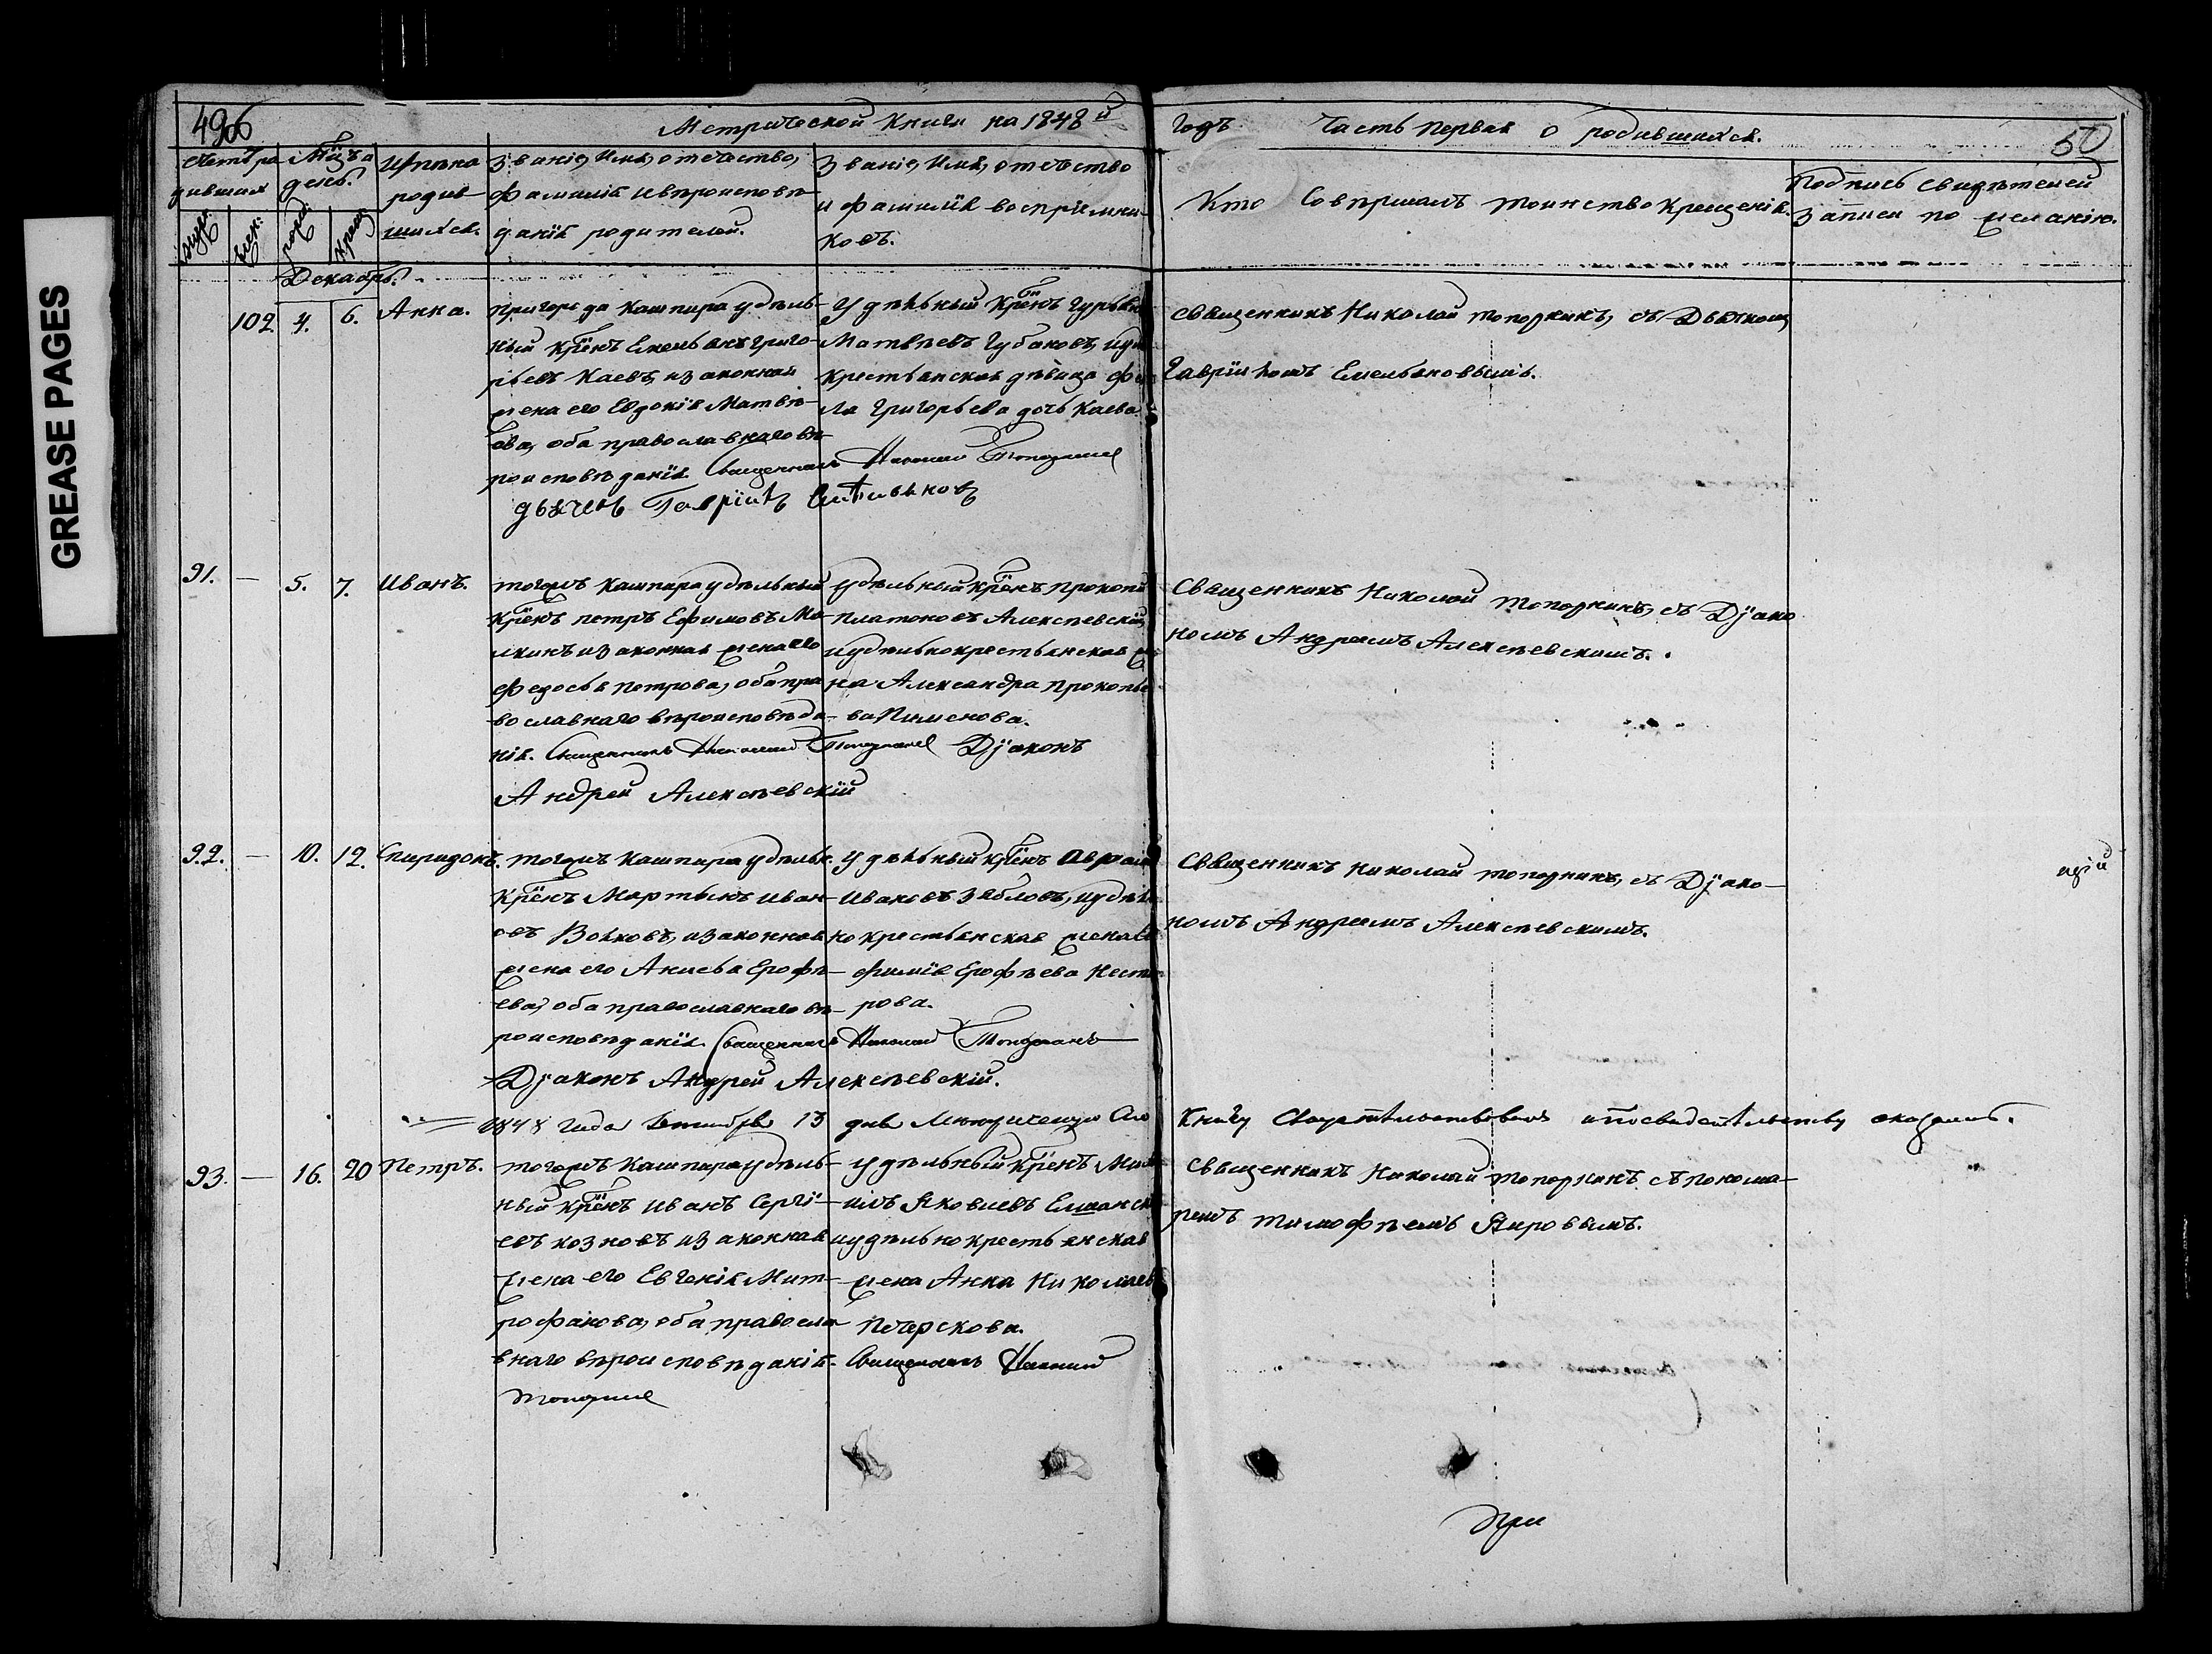 GREASE PAGES
Метрической Книги на 1848й
годъ Часть Первая о родившихся.
50
Счетъ родившихъ
Мѣсѧцъ день.
Имѧна родившихся.
Званіе, Имя, отечество,
фамилія и вѣроисповѣданія родителей.
Званіе, Имя, отечество
и фамилія воспріемниковъ.
Кто Совершалъ таинство крещенія.
Подпись свидѣтелей
записи по желанію.
муж:
жен:
рожд:
крещ:
Декабрь.
102 4. 6. Анна.
пригорода Кашпира удѣль-
ный крестенъ Емельянъ Григо-
рьевъ Каевъ, и законная
жена его Евдокія Матвѣ-
ева, оба православнаго вѣ-
роисповѣданія Священникъ Николай Топорнинъ
дьячекъ Гавріилъ Емельяновъ
Удѣльный Крестенъ Гурьянъ
Матвѣевъ Губановъ, и уд
крестьянская дѣвица Фе
ла Григорьева дочь Каева.
священникъ Николай Топорнинъ, съ Дьячкомъ
Гавріиломъ Емельяновымъ.
91. — 5. 7. Иванъ.
тогожъ Кашпира удѣльный
крестенъ Петръ Ефимовъ Ма-
лкинъ и законная жена его
Федосья Петрова, оба пра
вославнаго вѣроисповѣда-
нія. Священникъ Николай Топорнинъ Дьяконъ
Андрей Алексѣевскій
Удѣльный крестенъ Прокопій
Платоновъ Алексѣевскій,
и удѣльнокрестьянская же
на Александра Прокопье
ва Пименова.
Священникъ Николай Топорнинъ, съ Дьяко
номъ Андреемъ Алексѣевскимъ.
92. — 10. 12. Спиридонъ.
тогожъ Кашпира удѣльн.
крестенъ Мартынъ Иван-
овъ Волковъ, и законная
жена его Анисья Ерофѣ-
ева, оба православнаго вѣ-
роисповѣданія. Священникъ Николай Топорнинъ
Дьяконъ Андрей Алексѣевскій.
Удѣльный крестенъ Аврам
Ивановъ Зябловъ, и удѣль
но крестьянская жена Ев
фимія Ерофѣева Несте
рова.
Священникъ Николай Топорнинъ, съ Дьяко-
номъ Андреемъ Алексѣевскимъ.
1848 года Декабря 13 дня Метрическую Сію
Книгу Свидѣтельствовалъ и по свидѣтельству оказалась.
93. — 16. 20 Петръ.
тогожъ Кашпира удѣль-
ный крестенъ Иванъ Сергі-
евъ Козновъ и законная
жена его Евгенія Мит-
рофанова, оба правосла
внаго вѣроисповѣданія. Священникъ Николай
Топорнинъ
Удѣльный крестенъ Миха
илъ Яковлевъ Елшанск
и удѣльно крестьянская
жена Анна Николаев
Печерскова.
Священникъ Николай Топорнинъ съ понома-
ремъ Тимофѣемъ Яировымъ.
При